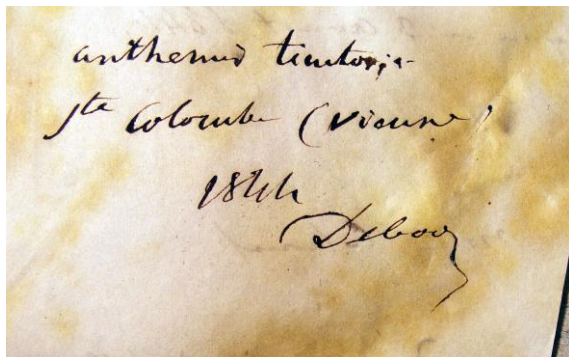 anthemis tinctoria
Ste Colombe (vienne)
1844
Debooz